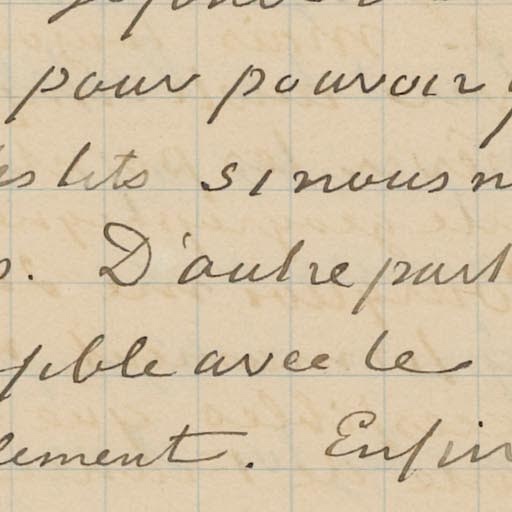 pour pouvoir
lits si nous n
. D'autre part
ple avec le
lement. Enfin